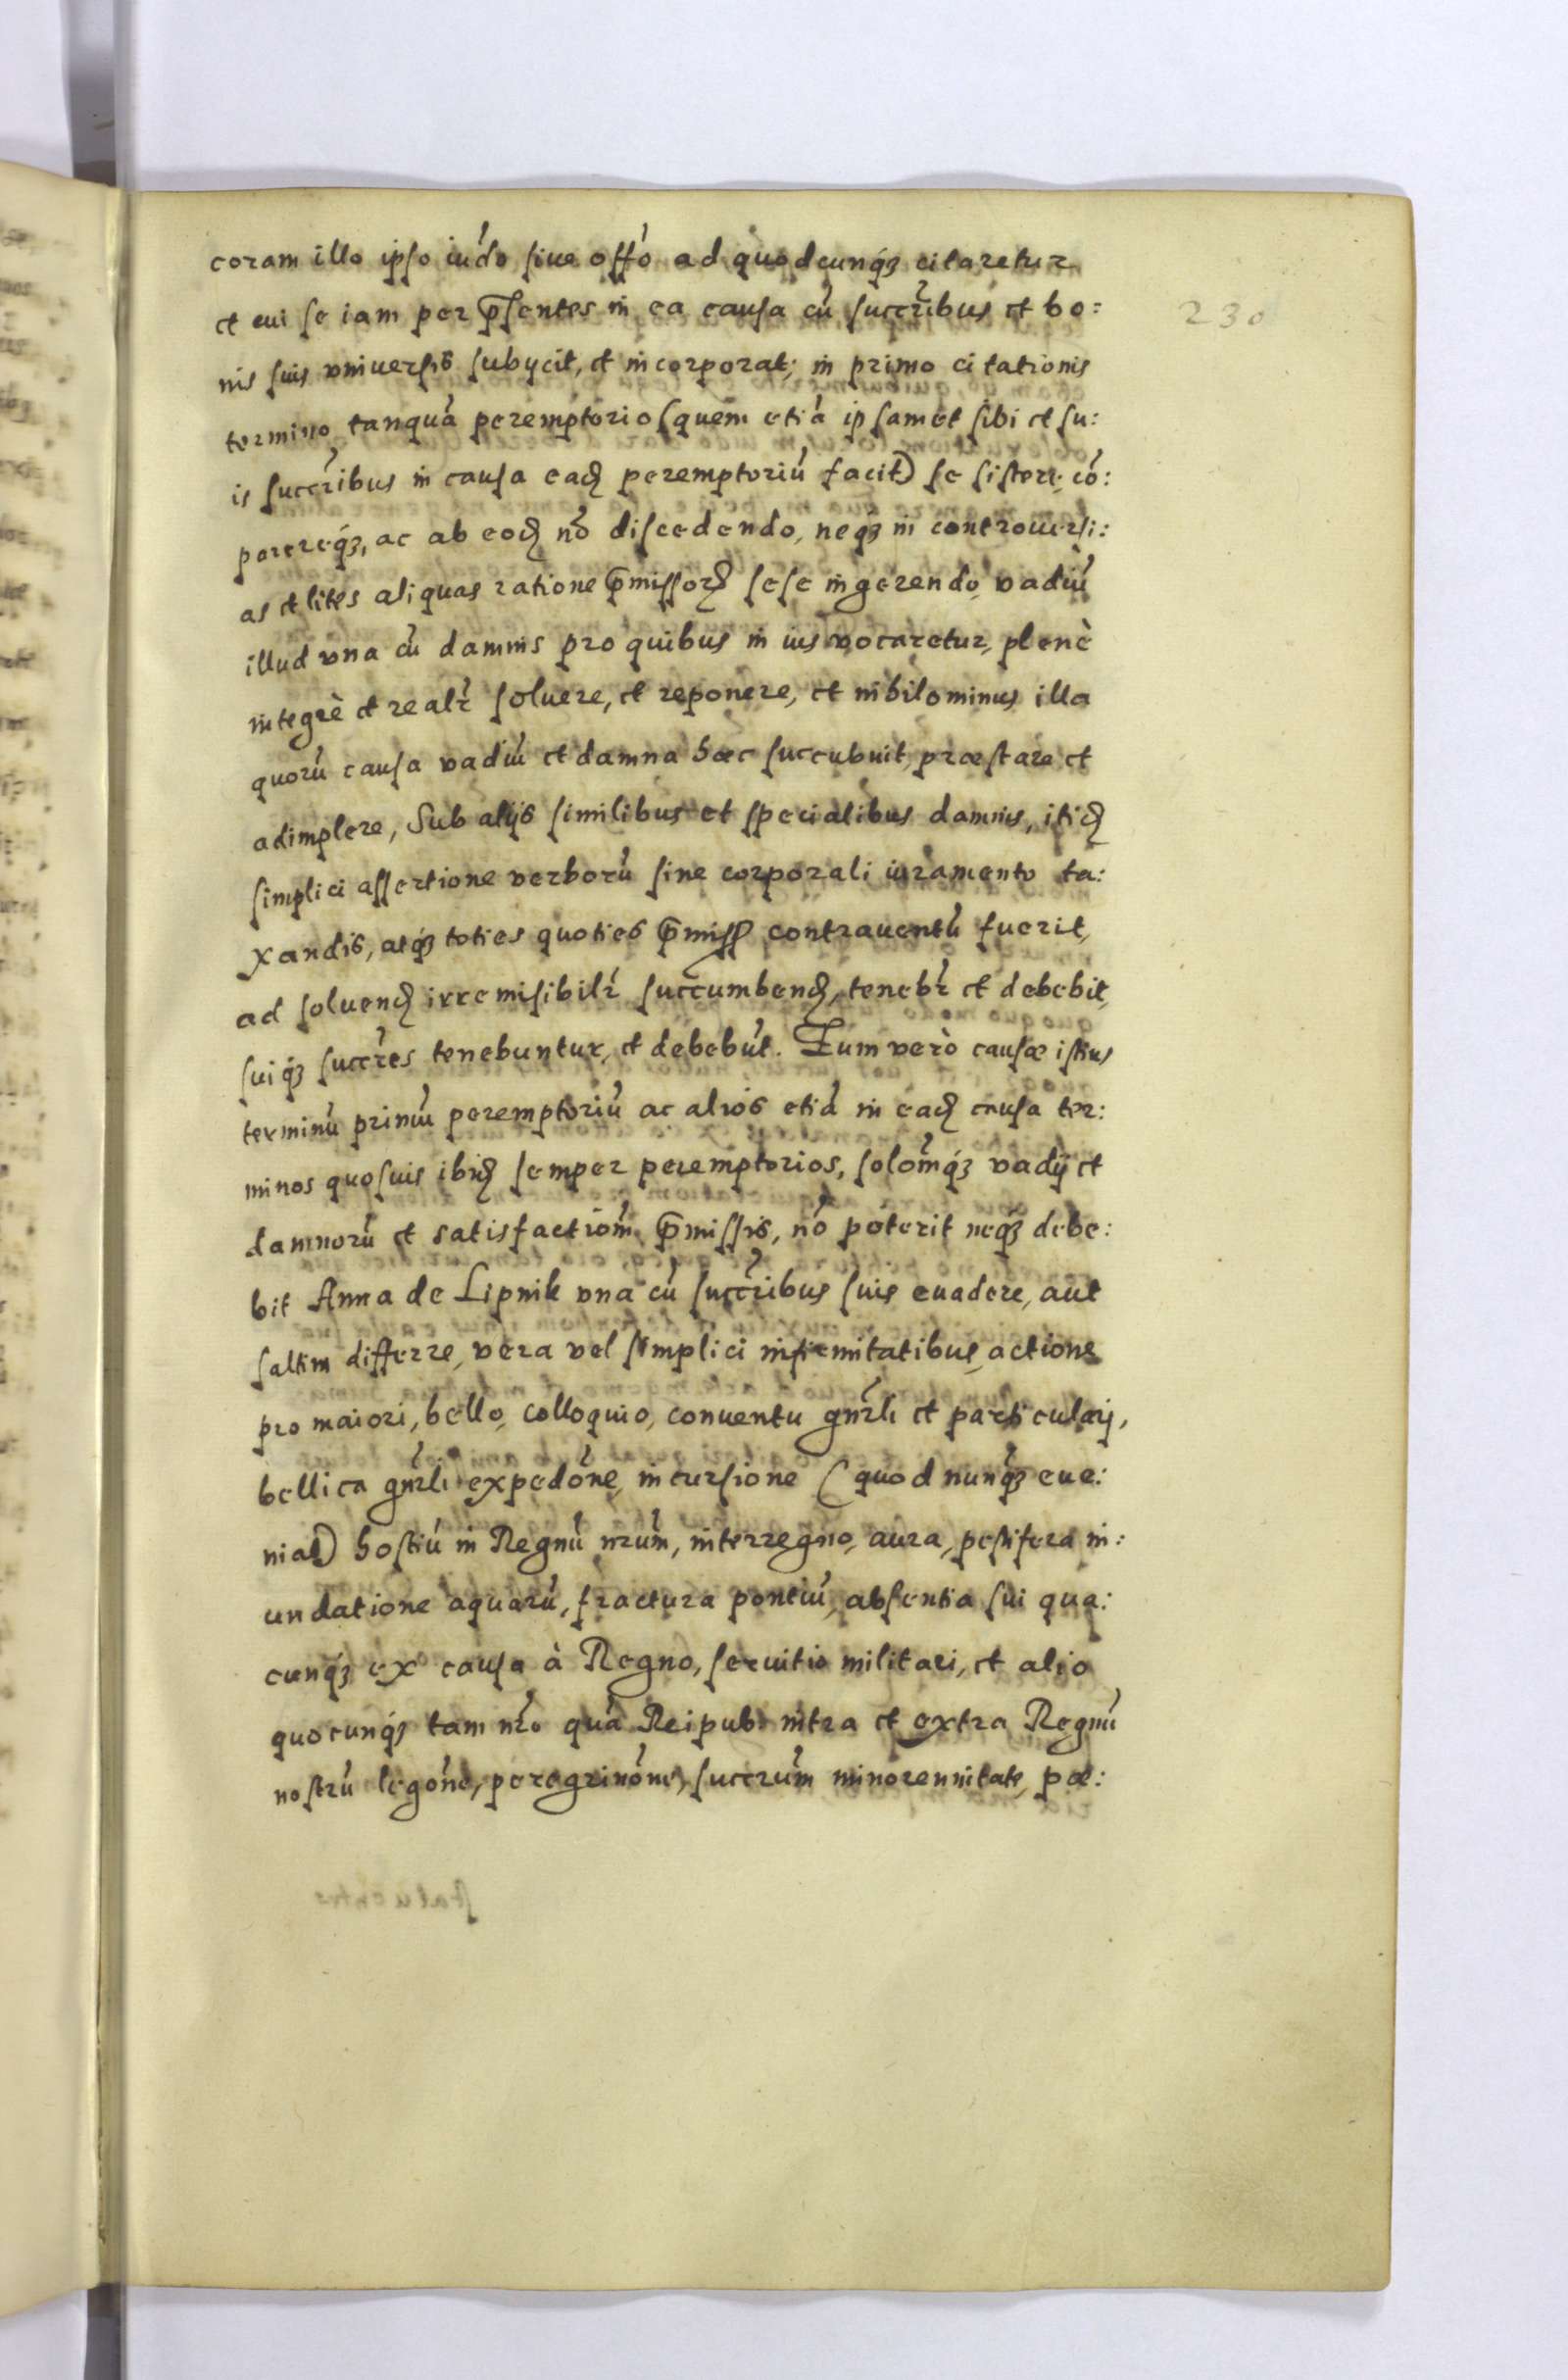 coram illo ipso iud́o siue offó ad quodcunq́ꝫ citaretur
230
et cui se iam per p̄sentes in ea causa cú succr̃ibus et bo:
nis suis vniuersis subycit, et incorporat; in primo citationis
termino tanquá peremptorio (quem etiá ipsamet sibi et su:
is succr̃ibus in causa eadꝫ peremptoriú facit) se sistere, có:
perereq́ꝫ, ac ab eodꝫ nõ discedendo, neq́ꝫ in controuersi:
as et lites aliquas ratione p̄missorꝫ sese ingerendo, vadiú
illud vna cú damnis pro quibus in ius vocaretur, plenè
integrè et realr̃ soluere, et reponere, et nihilominus illa
quorú causa vadiú et damna hæc succubuit, præstare et
adimplere, Sub alijs similibus et specialibus damnis, itidꝫ
simplici assertione verború sine corporali iuramento ta:
xandis, atq́ꝫ toties quoties p̄miss contrauentú fuerit,
ad soluendꝫ irremisibilr̃ succumbendꝫ, tenebr̃ et debebit,
suiq́ꝫ succr̃es tenebuntur, et debebút. Tum verò causæ istius
terminú primú peremptoriú ac alios etiá in eadꝫ causa ter:
minos quosuis ibidꝫ semper peremptorios, solom̃q́ꝫ vadij et
damnorú et satisfactiom̃ p̄missis, nó poterit neq́ꝫ debe:
bit Anna de Lipnik vna cú succr̃ibus suis euadere, aut
saltim differre, vera vel simplici infirmitatibus, actione
pro maiori, bello, colloquio, conuentu gnr̃li et particularj,
bellica gnr̃li expedóne, incursione (quod nunq́ꝫ eue:
niat) hostiú in Regnú nrũm, interregno, aura, pestifera in:
undatione aquarú, fractura pontiú, absentia sui qua:
cunq́ꝫ ex causa à Regno, seruitio militari, et alio
quocunq́ꝫ tam nrõ quá Reipub: intra et extra Regnú
nostrú legóne, peregrinóne, succrũm minorennitate, pœ: